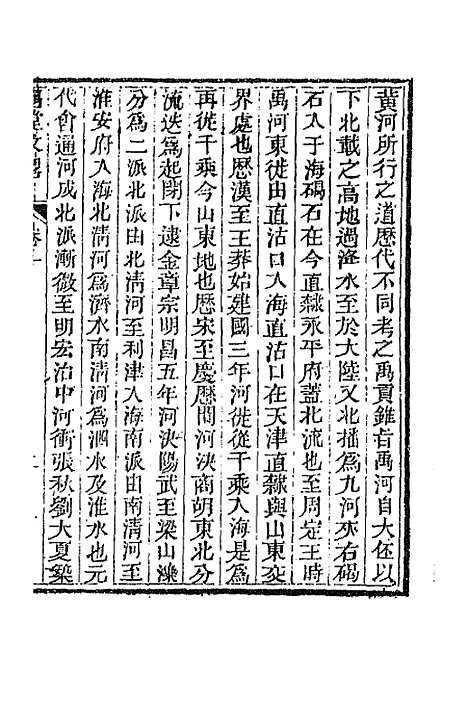 黃河所行之道歷代不同考之禹貢錐㫖禹河自大伾以
下北載之高地過洚水至於大陸又北播爲九河夾右碣
石入于海碣石在今直𨽻永平府葢北流也至周定王時
禹河東徙由直沽口入海直沽口在天津直𨽻與山東交
界處也歷漢至王莽始建國三年河徙從千乘入海是爲
再徙千乘今山東地也歷宋至慶歷間河決商胡東北分
流迭爲起閉下逮金章宗明昌五年河決陽武至梁山濼
分爲二派北派由北淸河至利津入海南派由南淸河至
淮安府入海北淸河爲濟水南淸河爲泗水及淮水也元
代會通河成北派漸微至明宏治中河衝張秋劉大夏築